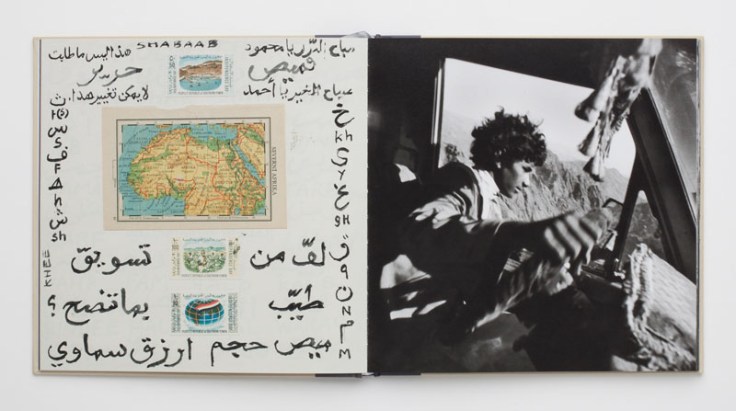 SHABAAB
صباح النّور يا محمود
هذا ليس ما طلبت
قميص
حرير
صباح الخير يا أحمد
لا يمكن تغيير هذا.
خ
kh
ي
Y
غ
gH
ق
q
ن
N
م
M
ث
س
S
ف
F
h
ش
sh
KHEE
SEVERNÍ AFRIKA
لفّ من
تسويق
طيّب
بما تنصح؟
ميص حجم
ازرق سماوي